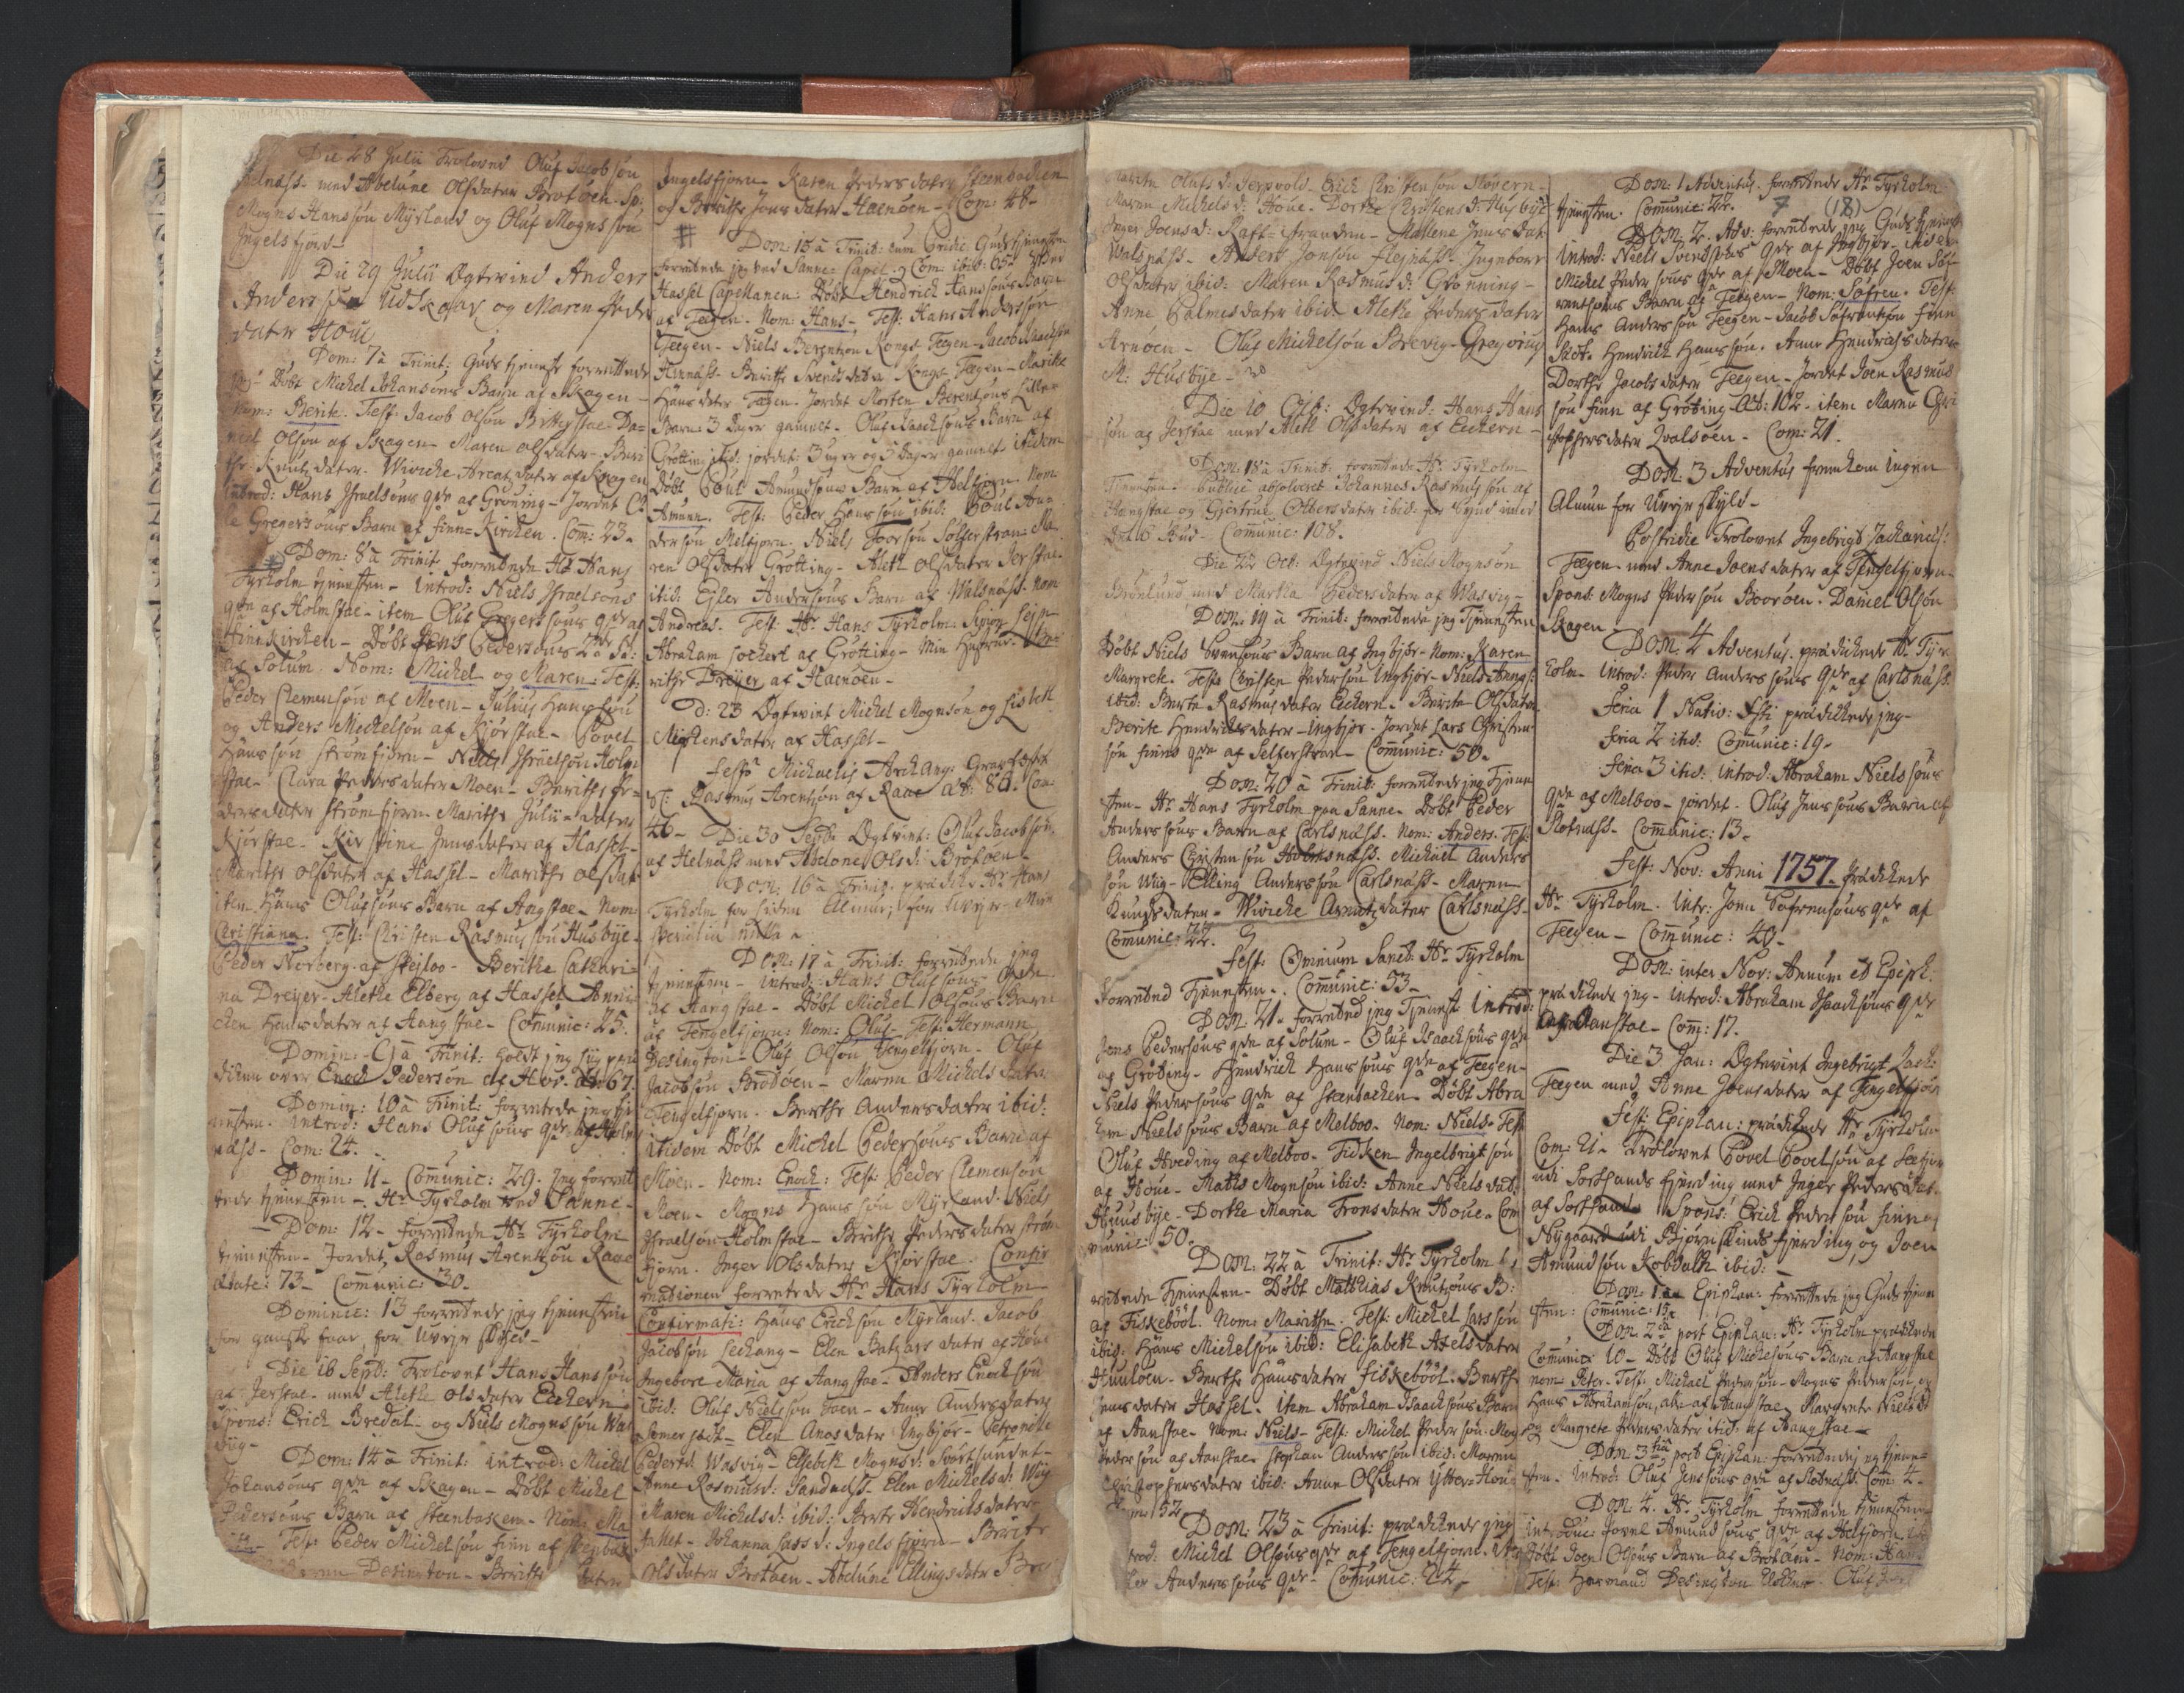 Die 28 Julii Troloved Oluf Jacobsøn
med Abelune Olsdater Brotøen Sp:
Mogns Hanssøn Myrland og Oluf Mognssøn
Ingelsfjord
Die 29 Julii Ægtevied Anders
Anderssøn Udskogar og Maren Peders
dater Houe
Dom: 7 a Trinit: Guds tjeneste forrettede
jeg Døbt Michel Johansøns Barn af Skagen
Nom: Berite. Test: Jacob Olsøn Da=
niel Olsøn af Skagen Maren Olsdater Beri
the Knutzdater. Wiviche Arentzdater af Skagen
introd: Hans Israelsøns qde af Grøning Jordet
Gregersøns Barn af finne=Kirchen. Com: 23.
Dom: 8 a Trinit forrettede Hr Hans
Tyrholm tjenesten introd: Niels Israelsøns
qde af Holmstae item Oluf Gregerssøns qde af
finnekirchen Døbt Jens Pedersøns
af Solum. Nom: Michel og Maren. Test:
Peder Clemensøn af Moen Julius Hanssøn
og Anders Michelsøn af Kjørstae Povel
Hanssøn Strømfjorn Niels Israelsøn Holm
stae Clara Pedersdater Moen Berithe Pe=
dersdater Strømfjorn Marithe Julii dater
Kjørstae Kirstine Jensdater af Hassel
Marithe Olsdater af Hassel Marithe Olsdat
item Hans Olufsøns Barn af Angstae Nom:
Christiana. Test: Christen Rasmussøn Husbye
Peder Norberg af Skjeloe Berithe Cathari=
na Dreyer Alethe Elberg af Hassel Anni
chen Hansdater af Aangstae Communic: 25.
Domin: 9 a Trinit: holdt jeg Liigpræ
dichen over Enoch Pedersøn af Hov. Æt: 67.
Domin: 10 a Trinit: forrettede jeg tje
nesten. introd: Hans Olufsøns qde af Holm
næss Com: 24.
Domin: 11 Communic: 29. jeg forret
tede tjenesten Hr Tyrholm ved Sanne
Dom: 12 forrettede Hr Tyrholm
tjenesten Jordet Rasmus Arentzøn Raae
ætate: 73 Comunic: 30.
Dominic: 13 forrettede jeg tjenesten
for ganske faae for Uveyr skyld
Die 16 Sept: Trolovet Hans Hanssøn
af Jerstae med Aleth Olsdater Eechern
Spons: Erich Bredal og Niels Mognssøn Was
viig
Dom: 14 a Trinit: introd: Michel
Johansøns qde af Skagen Døbt Michel
Pedersøns Barn af Steenbachen Nom: Ma
Test: Peder Michelsøn finn af Stenbak
Desington Berithe dater
Ingelsfjorn Karen Pedersdater Steenbachen
og Berithe Jonsdater Haenøen Com: 48
Dom: 15 a Trinit: cum Prædic: Guds tjenesten
forrettede jeg ved Sanne Capel. Com: ibid: 65.
Hassel Capellanen: Døbt Hendrich Hanssøns Barn
af Feegen. Nom: Hans. Test: Hans Anderssøn
Feegen Niels Berentzøn Kongs Feegen Jacob Isaachsøn
Hannæss Berithe Svendsdater Kongs Feegen Marithe
Hansdater Feegen. Jordet Morten Berentsøns Lille
Barn: 3 Dager gammel. Oluf Isaachsøns Barn af
Grøtting ibid. jordet: 3 uger og 5 Dager gammelt ibidem
Døbt Poul Amundsøns Barn af Melfjorn. Nom:
Amunn. Test: Peder Hanssøn ibid: Poul An=
dersøn Melfjorn. Niels Joorsøn Selferstran Ma
ren Olsdater Grøtting Aleth Olsdater Jerstae
ibid: Ejler Andersøns Barn af Walsnæss. Nom:
Andreas. Test: Hr Hans Tyrholm.
Abraham Lochert af Grøtting Min Hustrue Be=
rithe Dreyer af Haenøen
d: 23 Ægteviet Michel Mognsøn og Lisbeth
Mortensdater af Hassel
Festo Michaelis Archang: Græsfæst
Rasmus Arentzøn af Raae æt: 80. Com
46 Die 30 Septb: Ægteviet: Oluf Jacobsøn
af Helnæss med Abelone Olsd: Brotøen
Dom: 16 a Trinit. prædich: Hr Hans
Tyrholm for liden Almue, for Uveyr
Dom: 17 a Trinit: forrettede jeg
tjenesten introd: Hans Olufsøns qde
af Aangstae Døbt Michel Olsøns Barn
af Tengelfjorn: Nom: Oluf Test: Hermann
Desington Oluf Olsøn Tengelfjorn Oluf
Jacobsøn Brodøen Maren Michels dater
Tengelfjorn. Berthe Andersdater ibid:
itidem Døbt Michel Pedersøns Barn af
Moen Nom: Enoch: Test: Peder Clemensøn
Moen Mogns Hanssøn Myrland. Niels
Israelsøn Holmstae Berithe Pedersdater Strøm
fjorn. Inger Olsdater Kjørstae. Confir
mationen forrettede Hr Hans Tyrholm
Confirmati: Hans Erichsøn Myrland. Jacob
Jacobsøn Lechang Elen Baltzars dater af Houe
Ingebore Maria af Aangstae Anders Enochsøn
ibid: Oluf Nielssøn Anne Andersdater
Somersæt Elen Anosdater Ingbjør Petronelle
Pedersd: Wasvig Elsebeth Mognsd: Svortsundet
Anne Rasmusd: Sandnæss Elen Michelsd: Wiig
Maren Michelsd: ibid: Berte Hendrichsdater
Johanna Larsd: Ingelsfjorn Berite
Olsdater Brotøen Abelune Ellingsdater Bro
Marite Olufsd: Jerpvold Erich Christensøn Støvern
Maren Michelsd: Houe. Dorthe Christensd: Husbye
Inger Joensd: Raftstranden Mallene Jensdat:
Walsnæss Anders Jonsøn Flesnæss. Ingeborr
Olsdater ibid: Maren Rasmusd: Grønning
Anne Palmesdater ibid. Alethe Pedersdater
Arnøen Oluf Michelsøn Brevig Gregorius
M: Husbye
Die 10 Octb: Ægtevied: Hans Hans
søn af Jerstae med Aleth Olsdater af Eechern
Dom: 18 a Trinit. forrettede Hr Tyrholm
Tjenesten. Publice absolveret Johannes Rasmussøn af
Aangstae og Gjertrue Olbersdater ibid. for Synd imod
det 6 Bud. Communic: 108.
Die 22 Oct: Ægtevied Niels Mognsøn
Brønlund med Martha Pedersdater af Wasvig
Dom. 19 a Trinit: forrettede jeg Tjenesten
Døbt Niels Svensøns Barn af Ingbjør. Nom: Karen
Margrete. Test: Christen Pedersøn Ingbjør. Niels
ibid: Berte Rasmusdater Eechern. Berite Olsdater
Berite Hendrichsdater Ingbjør. Jordet Lars Christen
søn finns qde af Selferstran Communic: 50.
Dom: 20 a Trinit: forrettede jeg Tjene
sten Hr Hans Tyrholm paa Sanne. Døbt Peder
Anderssøns Barn af Carlsnæss. Nom: Anders. Test:
Anders Christensøn Holmsnæss. Michael Anders
søn Wiig Elling Anderssøn Carlsnæss Maren
Knudsdater. Wiviche Arentzdater Carlsnæss
Communic: 22.
Fest: Omnium Sanct: Hr Tyrholm
forretted Tjenesten. Communic: 53
Dom: 21. forretted jeg Tjenest Introd:
Jens Pedersøns qde af Solum Oluf Isaachsøns qde
af Grøting. Hendrich Hanssøns qde af Feegen
Niels Pedersøns qde af Steenbachen Døbt Abra
ham Nielssøns Barn af Melboe. Nom: Niels. Test:
Oluf Hveding af Melboe. Fidken Ingelbrigtsøn
af Houe Mathis Mognsøn ibid: Anne Nielsdat:
Huusbye. Dorthe Maria Tronsdater Houe. Com
munic: 50.
Dom: 22 a Trinit: Hr Tyrholm for
rettede Tjenesten Døbt Matthias Knutsøns B:
af Fiskebøl. Nom: Marithe. Test: Michel Larssøn
ibid: Hans Michelsøn ibid: Elisabeth Axelsdater
Huuløen Berthe Hansdater fiskebøl. Berthe
Jensdater Hassel. item Abraham Isaachsøns Barn
af Aanstae. Nom: Niels Test: Michel Pedersøn.
Pedersøn af Aanstae. Stephan Anderssøn ibid: Maren
Christophersdater ibid: Anne Olsdater Ytter=Hou
Com: 52.
Dom: 23 a Trinit: prædichede jeg
trod: Michel Olsøns qde af Tengelfjorn.
ler Anderssøns qde Comunic: 24.
Dom: 1 Adventus. forrettede Hr Tyrholm
tjenesten. Communic: 22. 7 (18)
Dom: 2. Adv: forrettede jeg Guds tjeneste
Introd: Niels Svendsøns qde af Ingbjør
Michel Pedersøns qde af Moen Døbt Joen Søf
rensøns Barn af Feegen Nom: Søfren. Test:
Hans Anderssøn Feegen Jacob Søfrensøn finn
Hendrich Hanssøn. Anne Hendrichsdater
Dorthe Jacobsdater Feegen Jordet Joen Rasmus
søn finn af Grøting Æt: 102. item Maren Chri
stophersdater Qvalsøen. Com: 21.
Dom. 3 Adventus fremkom ingen
Almue for Uveyr skyld
Postridie Trolovet Ingebrigt Zacharias:
Feegen med Anne Joensdater af Tengelfjorn
Spons: Mogns Pedersøn Boorøen. Daniel Olsøn
Skagen
Dom: 4 Adventus. prædichede Hr Tyr
holm. introd: Peder Anderssøns qde af Carlsnæss
Feria 1 Nativ: Xsti prædichede jeg
Feria 2 ibid: Comunic: 19.
Feria 3 ibid: introd: Abraham Nielssøns
qde af Melboe jordet. Oluf Jenssøns Barn af
Slotnæss Comunic: 13.
Fest: Nov: Anni 1757 prædichede
Hr Tyrholm. Intr: Joen Søfrensøns qde af
Feegen Comunic: 40.
Dom: inter Nov: Annum et Epiph:
prædichede jeg introd: Abraham Isaachsøns qde
Aanstae Com: 17.
Die 3 Jan: Ægteviet Ingebrigt Zach:
Feegen med Anne Joensdater af Tengelfjorn
Fest: Epiphan: prædichede Hr Tyrholm
Com: 21 Trolovet Povel Povelsøn af
udi Sortlands fjerding med Inger Pedersdat:
af Sortland Spons: Erich Pedersøn finn af
Nygaard udi Bjørnskinds fjerding, og Joen
Amundsøn Kobdalh ibid:
Dom: 1 Epiphan: forrettede jeg Guds tjene
sten: Comunic: 15.
Dom: 2 post Epiphan: Hr Tyrholm prædichede
Comunic: 10 Døbt Oluf Michelsøns Barn af Aangstae
nom: Peter. Test: Michael Pedersøn Mogns Pedersøn, og
Hans Abrahamsøn, alle af Aangstae. Margrete Nielsd
og Margrete Pedersdater ibid. af Aangstae
Dom: 3 post Epiphan: forrettede jeg tjene=
sten. Introd: Oluf Jenssøns qde af Slotnæss. Com: 4.
Dom: 4. Hr Tyrholm forrettede tjenesten
introduc: Povel Amundsøns qde af Melfjorn.
Døbt Joen Olsøns Barn af Brotøen Nom: Han
Test: Hermand Desington Oluf